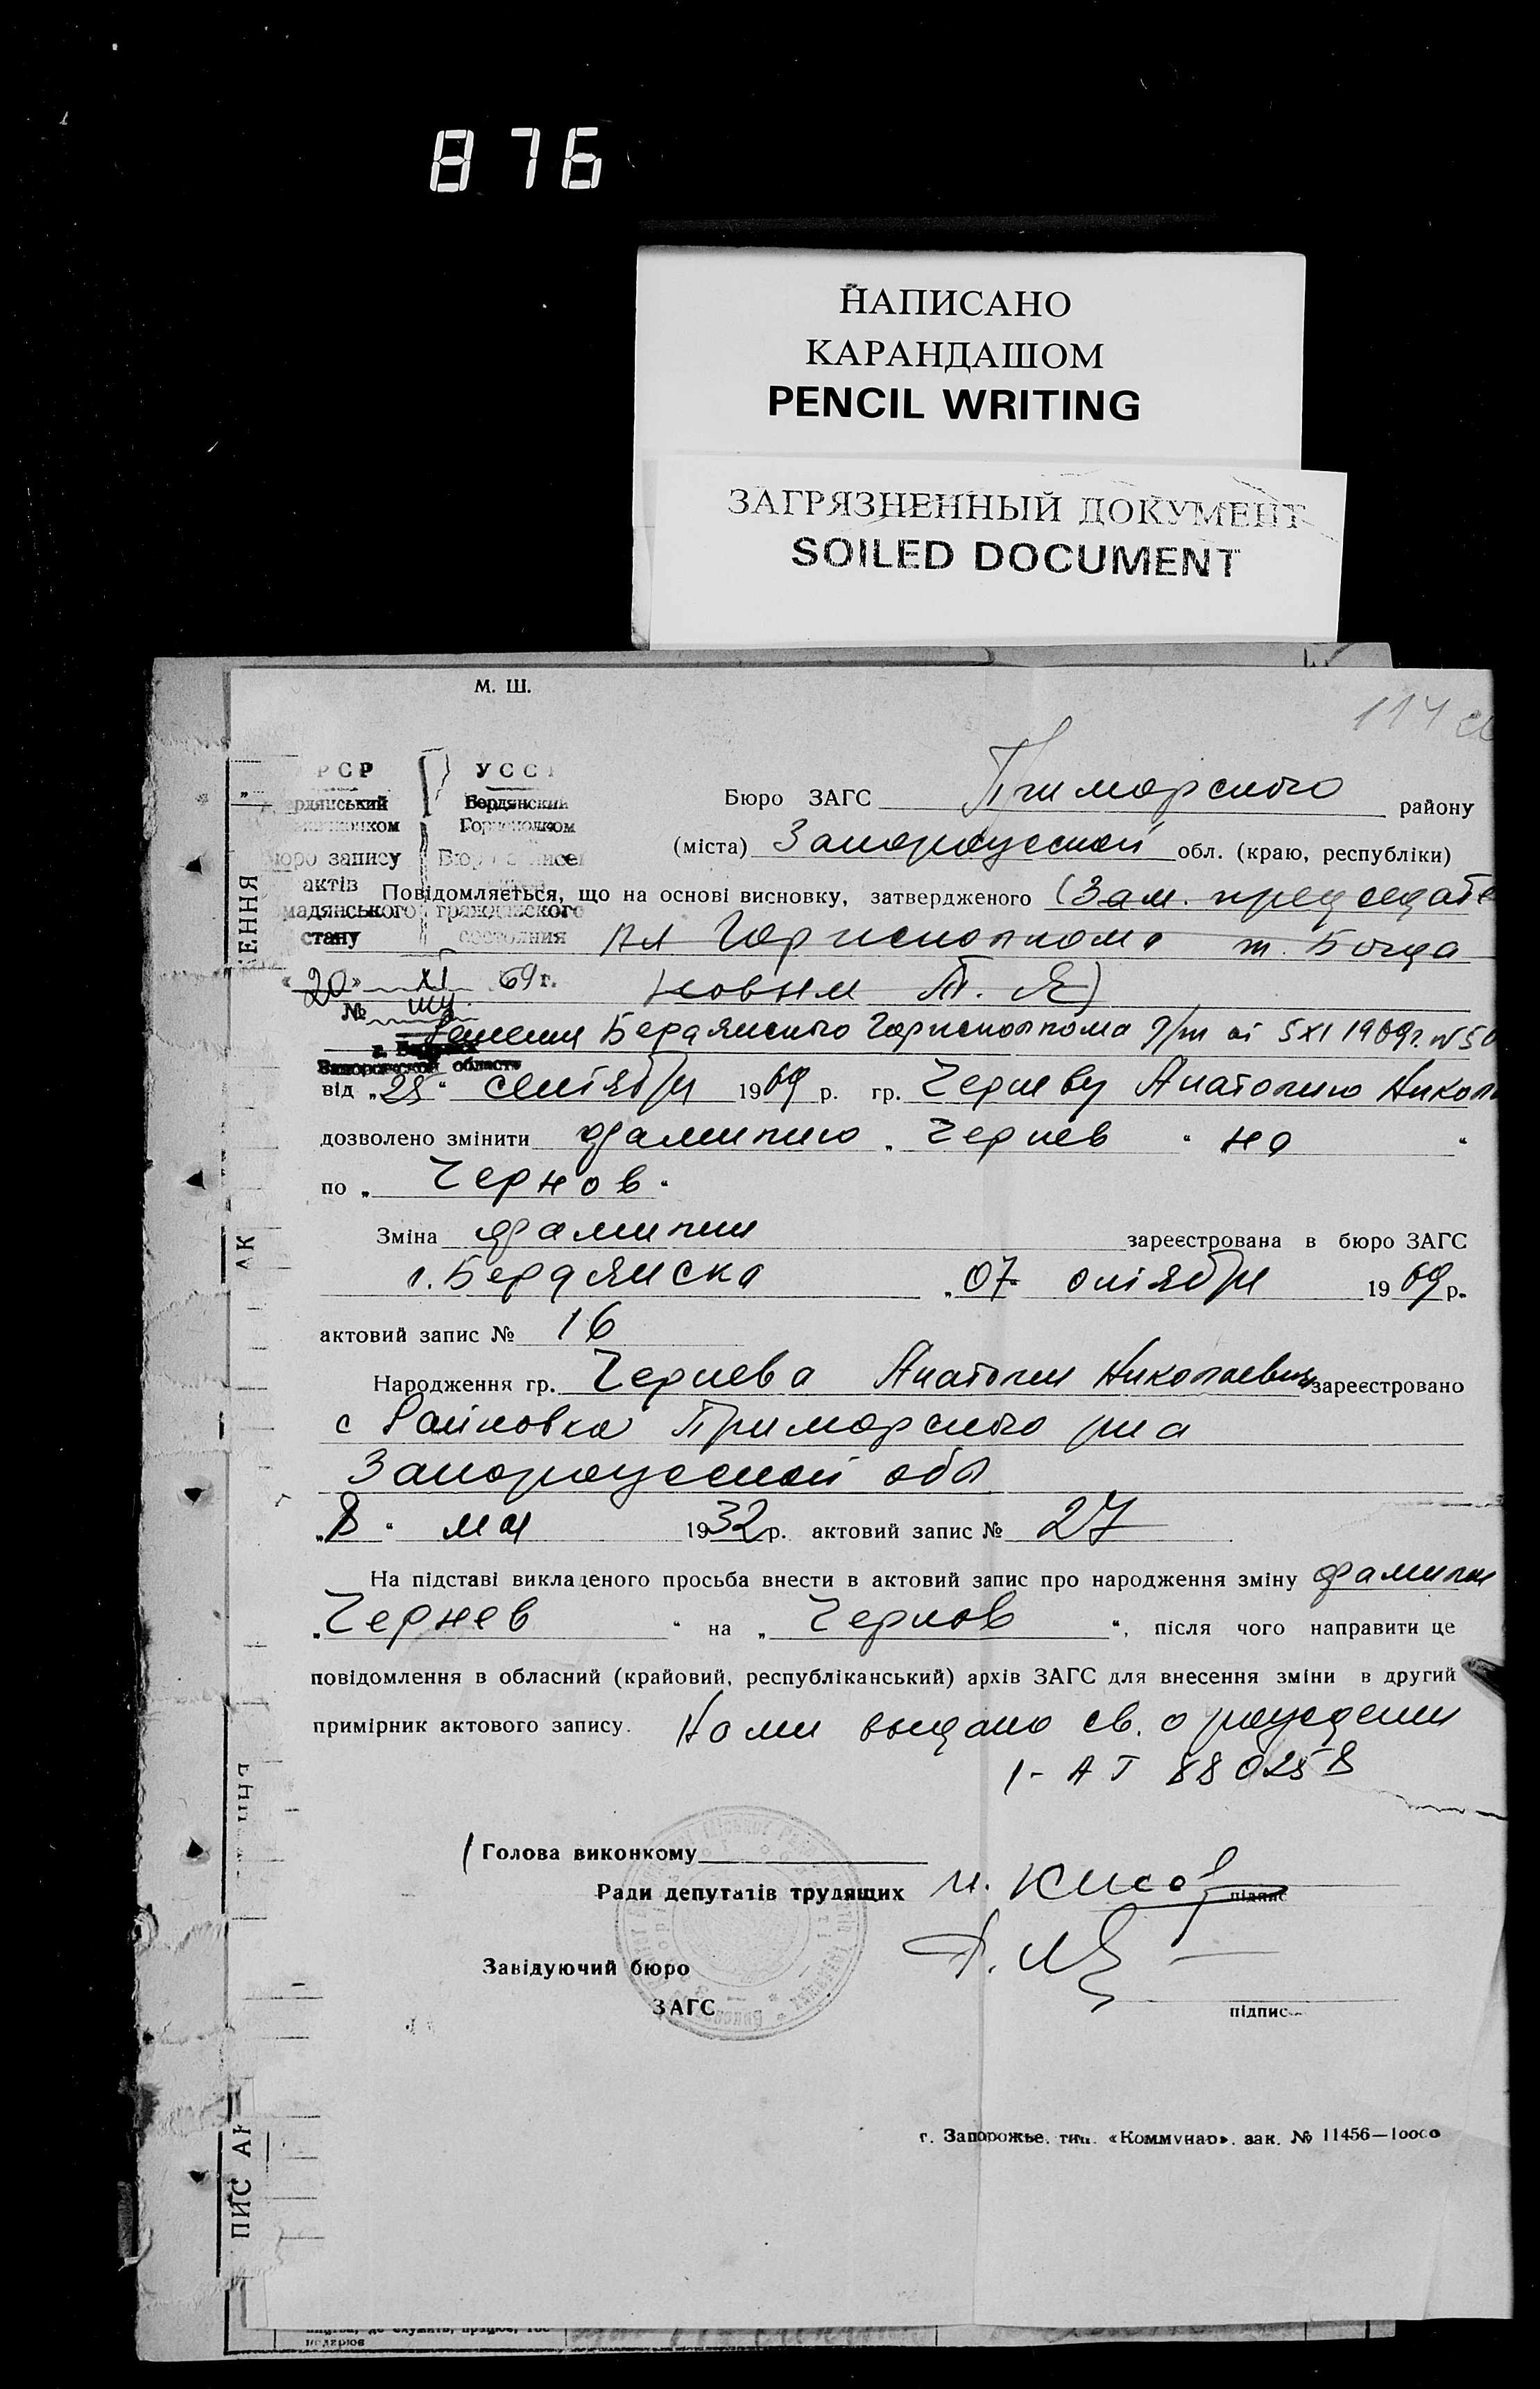 876
НАПИСАНО
КАРАНДАШОМ
PENCIL WRITING
ЗАГРЯЗНЕННЫЙ ДОКУМЕНТ
SOILED DOCUMENT
М. Ш.
114
РСР УСС
Бердянский
Горисполком
Бюро ЗАГС Приморского району
бюро запису
(міста) Запорожской обл. (краю, республіки)
актів
Повідомляється, що на основі висновку, затвердженого (Зам. председате
мадянського гражданского
стану состояния
ля Горисполкома т. Бонда
«20» XI 69 г.
ковым
№
Решения Бердянского Горисполкома от 5 XI 1969г. №
Запорожской области
від „25“ сентября 1969 р. гр. Черневу Анатолию Никол
дозволено змінити фамилию „Чернев“ на
по „Чернов“
Зміна фамилии зареєстрована в бюро ЗАГС
г. Бердянска „07 октября 1969 р.
актовий запис № 16
Народження гр. Чернева Анатолия Николаевича зареєстровано
с Райновка Приморского р-на
Запорожской обл
„8“ мая 1932 р. актовий запис № 27
На підставі викладеного просьба внести в актовий запис про народження зміну фамилии
„Чернев“ на „Чернов“, після чого направити це
повідомлення в обласний (крайовий, республіканський) архів ЗАГС для внесення зміни в другий
примірник актового запису. Нами выдано св. о рождении
I-АТ 880258
Голова виконкому
Ради депутатів трудящих
підпис
Завідуючий бюро
ЗАГС
підпис
г. Запорожье. тип. «Коммунар». зак. № 11456—10000
ЕННЯ
АК
ПИС АК